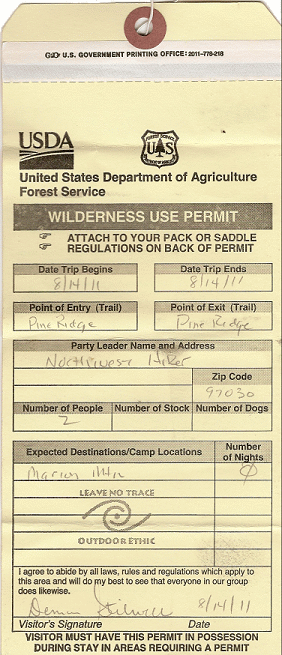 GPO U.S. GOVERNMENT PRINTING OFFICE: 2011-776-218
USDA
FOREST SERVICE
U S
DEPARTMENT OF AGRICULTURE
United States Department of Agriculture
Forest Service
WILDERNESS USE PERMIT
☞ ATTACH TO YOUR PACK OR SADDLE
☞ REGULATIONS ON BACK OF PERMIT
Date Trip Begins Date Trip Ends
8/14/11 8/14/11
Point of Entry (Trail) Point of Exit (Trail)
Pine Ridge Pine Ridge
Party Leader Name and Address
Northwest Hiker
Zip Code
97030
Number of People Number of Stock Number of Dogs
2
Expected Destinations/Camp Locations Number of Nights
Marion Mtn Ø
LEAVE NO TRACE
OUTDOOR ETHIC
I agree to abide by all laws, rules and regulations which apply to
this area and will do my best to see that everyone in our group
does likewise.
8/14/11
Visitor's Signature Date
VISITOR MUST HAVE THIS PERMIT IN POSSESSION
DURING STAY IN AREAS REQUIRING A PERMIT